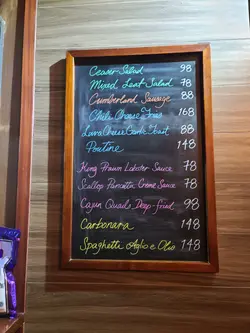 Ceaser Salad 98
Mixed Leaf Salad 78
Cumberland Sausage 88
Chili Cheese Fries 168
Lava Cheese Toast 88
Poutine 148
King Prawn Lobster Sauce 78
Scallop Pancetta Creme Sauce 78
Cajun Quads Deep-fried 98
Carbonara 148
Spaghetti Aglio e Olio 148